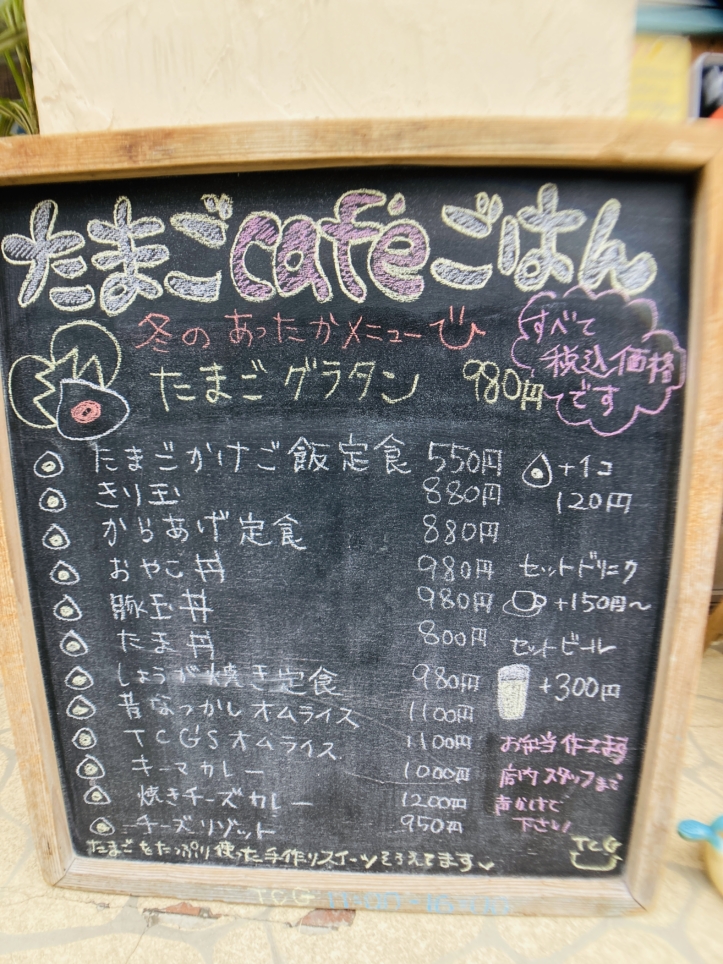 たまごcaféごはん
冬のあったかメニューでび
たまごグラタン 980円
すべて
税込価格
です
たまごかけご飯定食 550円
+1コ
120円
きり玉 880円
からあげ定食 880円
おやこ丼 980円
セットドリンク
+150円〜
豚玉丼 980円
たま丼 800円
セットビール
+300円
しょうが焼き定食 980円
昔なつかしオムライス 1100円
TCG'Sオムライス 1100円
キーマカレー 1000円
焼きチーズカレー 1200円
チーズリゾット 950円
お弁当作
店内スタッフまで
声かけて
下さい
たまごをたっぷり使った手作りスイーツそろえてます
TCG